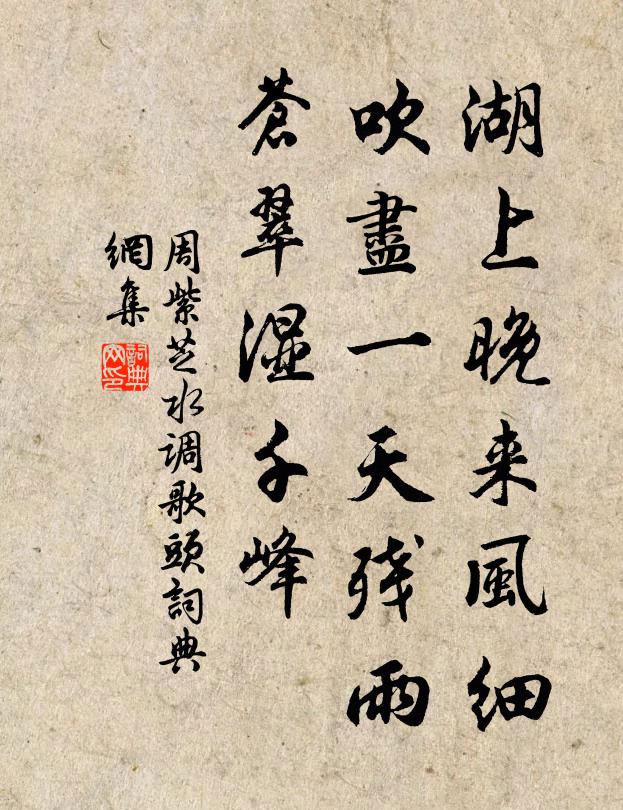 湖上晚来風细
吹盡一天残雨
蒼翠湿千峰
周紫芝水调歌頭詞典
網集
詞典
网印